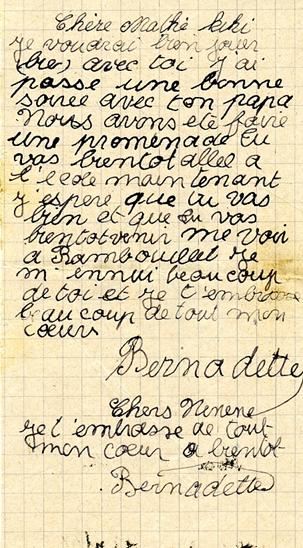 Chère Mathé kiki
je voudrai bien jouer
(bie) avec toi j'ai
passe une bonne
soiree avec ton papa
nous avons ete faire
une promenade tu
vas bientot allee a
l'école maintenant
j'espere que tu vas
bien et que tu vas
bientot venir me voir
a Rambouillet je
m'ennui beaucoup
de toi et je t'embrasse
beaucoup de tout mon
cœur
Bernadette
Chers Nenene
je t'embrasse de tout
mon coeur a bientot
Bernadette